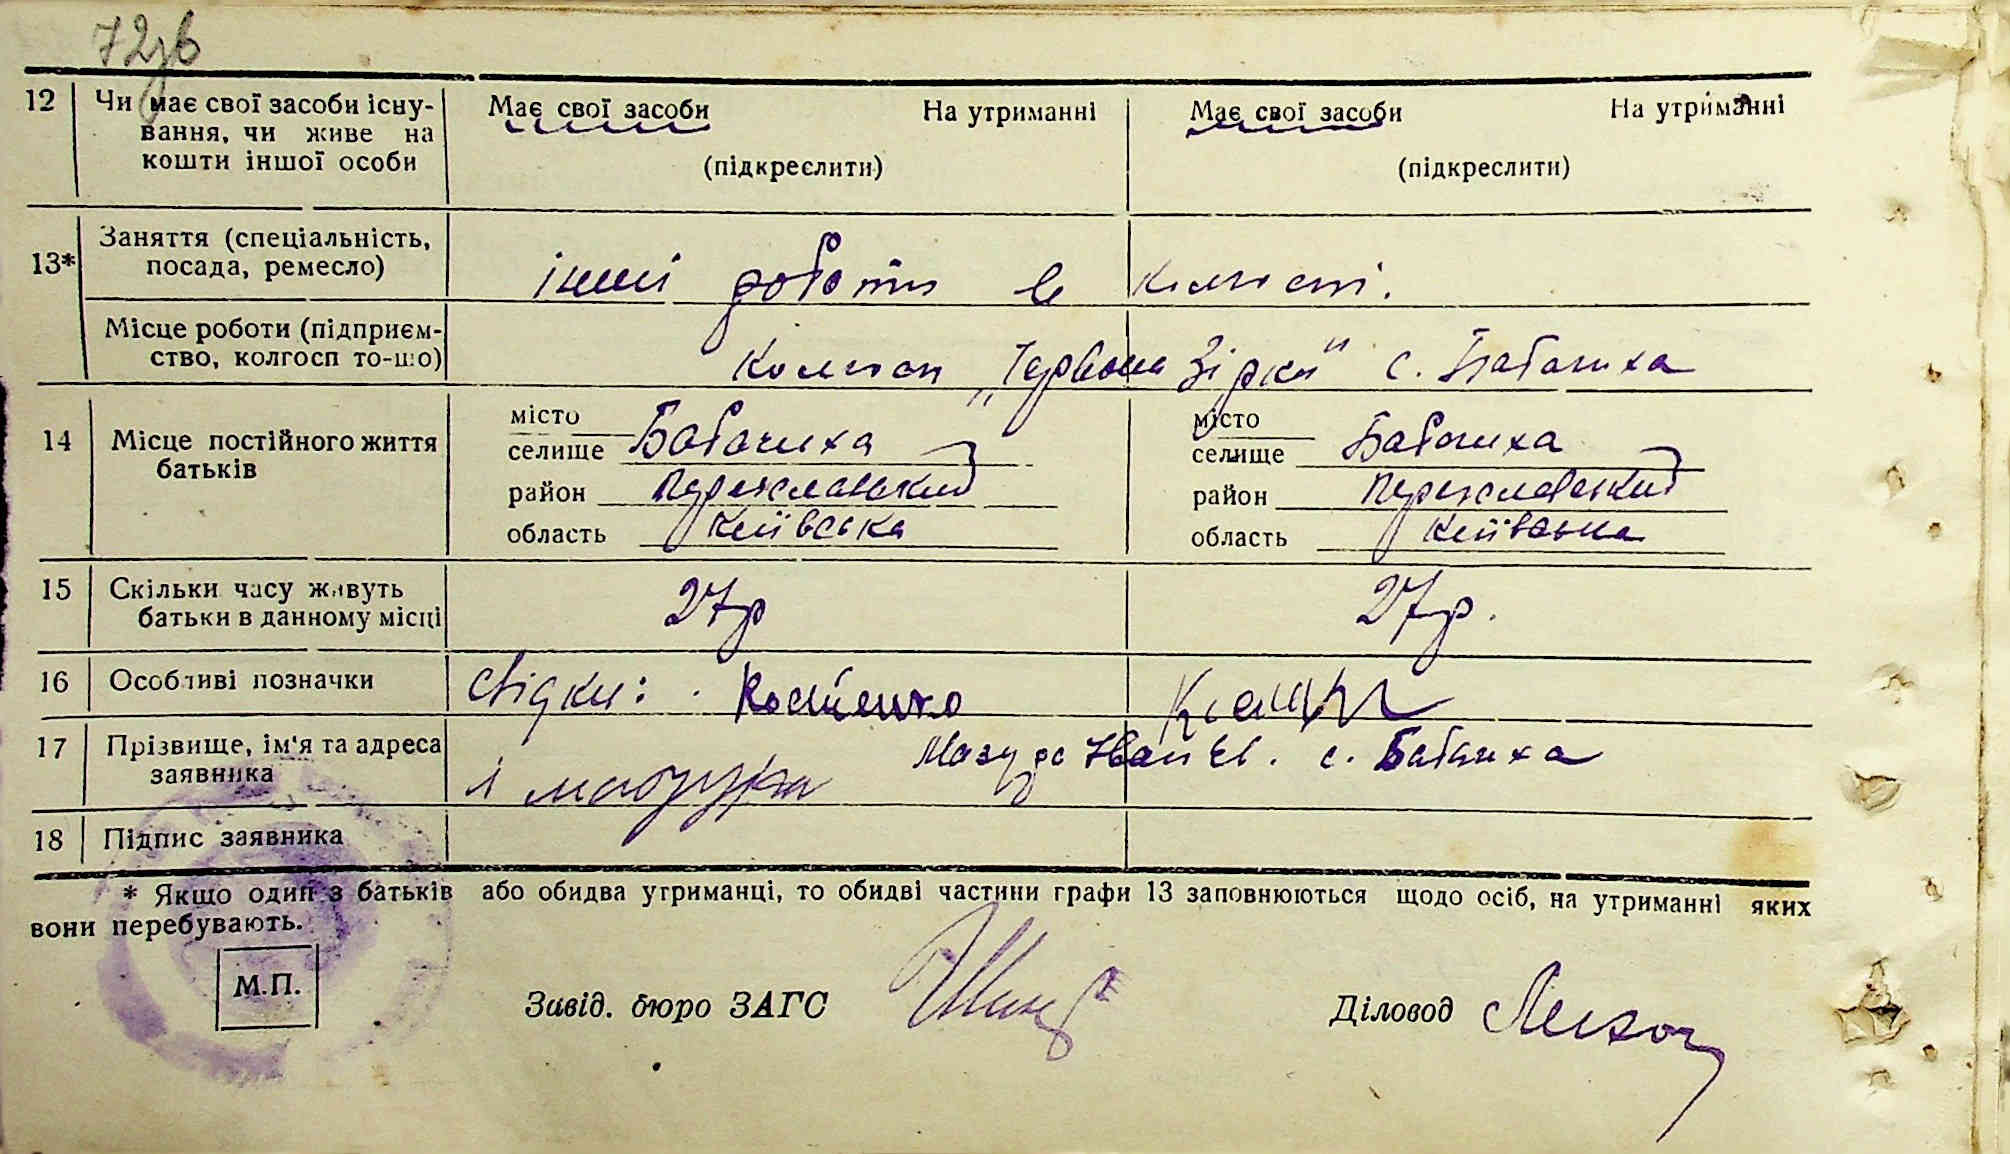 72зв
12 Чи має свої засоби існу- Має свої засоби На утриманні Має свої засоби На утриманні
вання, чи живе на
кошти іншої особи (підкреслити) (підкреслити)
Заняття (спеціальність,
13* посада, ремесло) інші роботи в колгоспі.
Місце роботи (підприєм-
ство, колгосп то-що) Колгосп „Червона Зірка" с. Бабачиха
14 Місце постійного життя місто місто
батьків селище Бабачиха селище Бабачиха
район Переяславський район Переяславський
область Київська область Київська
15 Скільки часу живуть 27р 27р.
батьки в данному місці
16 Особливі позначки свідки: Костенко
17 Прізвище, ім'я та адреса Мазура Іван с. Бабачиха
заявника і
18 Підпис заявника
* Якщо один з батьків або обидва утриманці, то обидві частини графи 13 заповнюються щодо осіб, на утриманні яких
вони перебувають.
М.П.
Завід. бюро ЗАГС Діловод